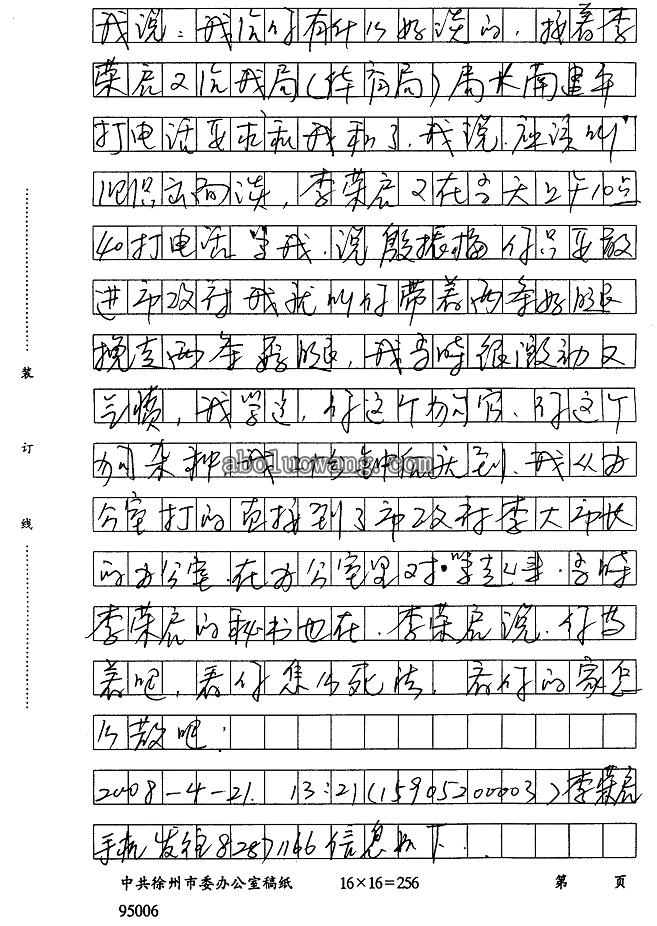 我说：我给你有什么好谈的，接着李
荣启又给我局（体育局）局长南建年
打电话要求和我和了，我说应该叫
李荣启又在今天上午10点
40打电话骂我，说殷振梅你只要敢
进市政府我就叫你带着两条好腿
两条腿，我当时很激动又
气愤，我骂道，你这个狗官、你这个
狗杂种我
aboluowang.com
到，我从办
公室打的直接到了市政府李大市长
的办公室，在办公室里对骂起来，当时
李荣启的秘书也在，李荣启说，你等
着吧，看你怎么死法，看你的家怎
么散吧；
2008-4-21. 13:21(15905200003)李荣启
手机发往82871166信息如下：
装
订
线
中共徐州市委办公室稿纸 16×16=256 第 页
95006